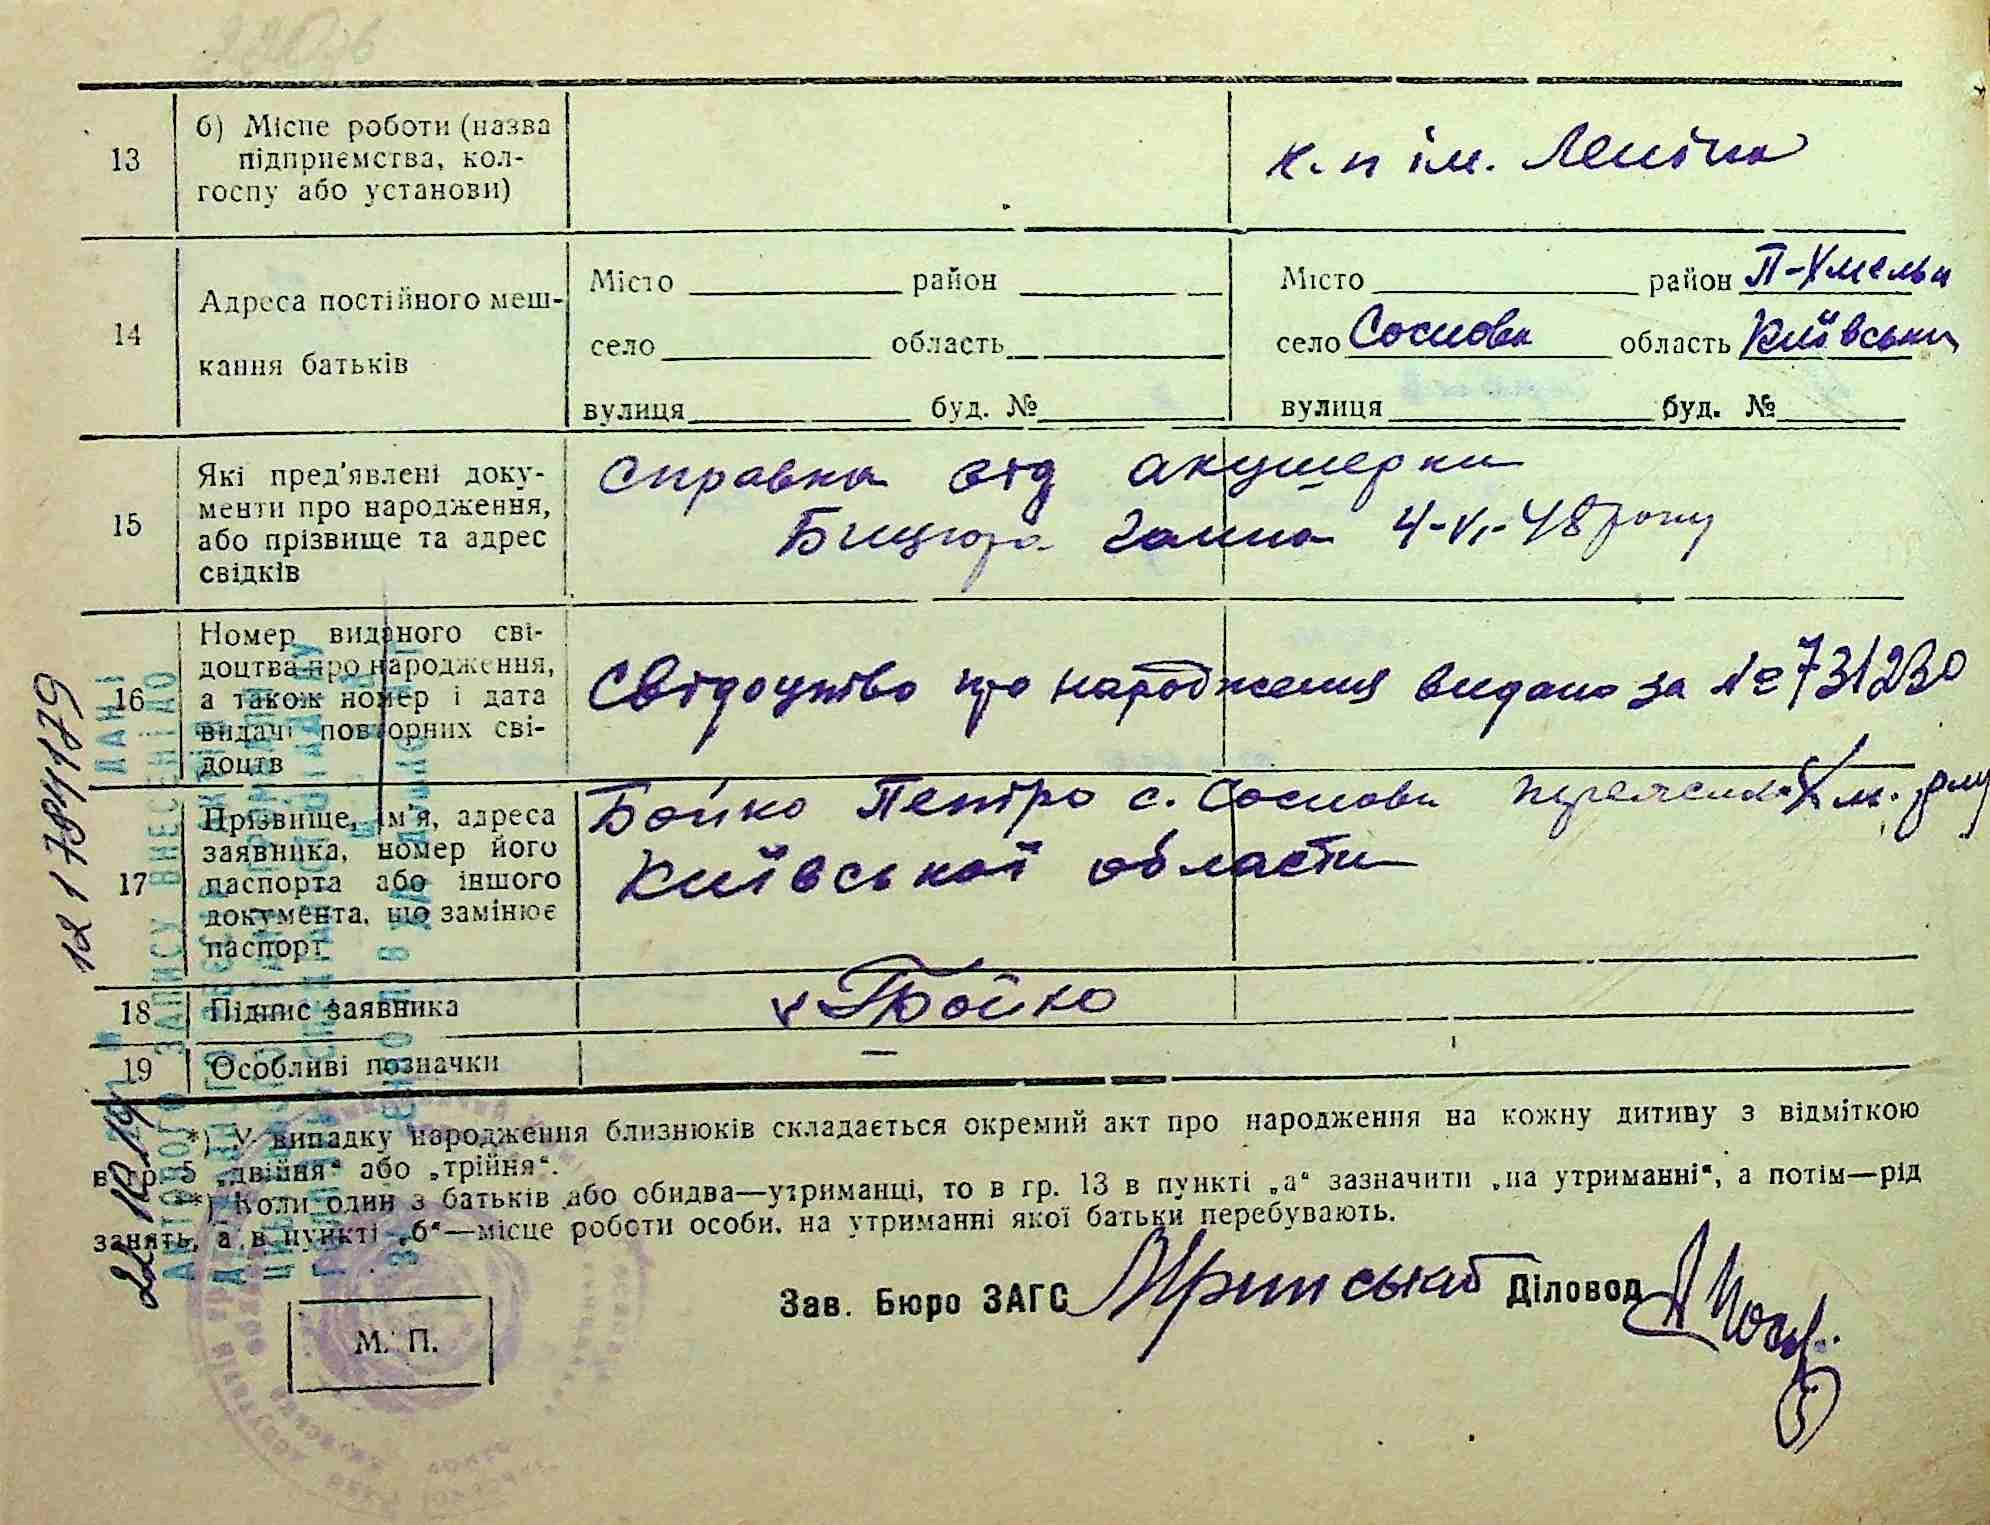 13
б) Місце роботи (назва
підприємства, кол-
госпу або установи)
к.п ім. Леніна
14
Адреса постійного меш-
кання батьків
Місто район
село область
вулиця буд. №
Місто район П-Хмельн
село Соснова область Київська
вулиця буд. №
15
Які пред'явлені доку-
менти про народження,
або прізвище та адрес
свідків
Справка від акушерки
Бицюра Ганна 4-VI-48 року
16
Номер виданого сві-
доцтва про народження,
а також номер і дата
видачі повторних сві-
доцтв
Свідоцтво про народження видано за № 731230
17
Прізвище, ім'я, адреса
заявника, номер його
паспорта або іншого
документа, що замінює
паспорт
Бойко Петро с. Соснова
Київської області
18
Підпис заявника
Бойко
19
Особливі позначки
—
*) У випадку народження близнюків складається окремий акт про народження на кожну дитину з відміткою
в гр. 5 „двійня“ або „трійня“.
**) Коли один з батьків або обидва—утриманці, то в гр. 13 в пункті „а“ зазначити „на утриманні“, а потім—рід
занять, а в пункті „б“—місце роботи особи, на утриманні якої батьки перебувають.
Зав. Бюро ЗАГС Діловод
М. П.
ДАНІ
АКТОВОГО ЗАПИСУ ВНЕСЕНІ ДО